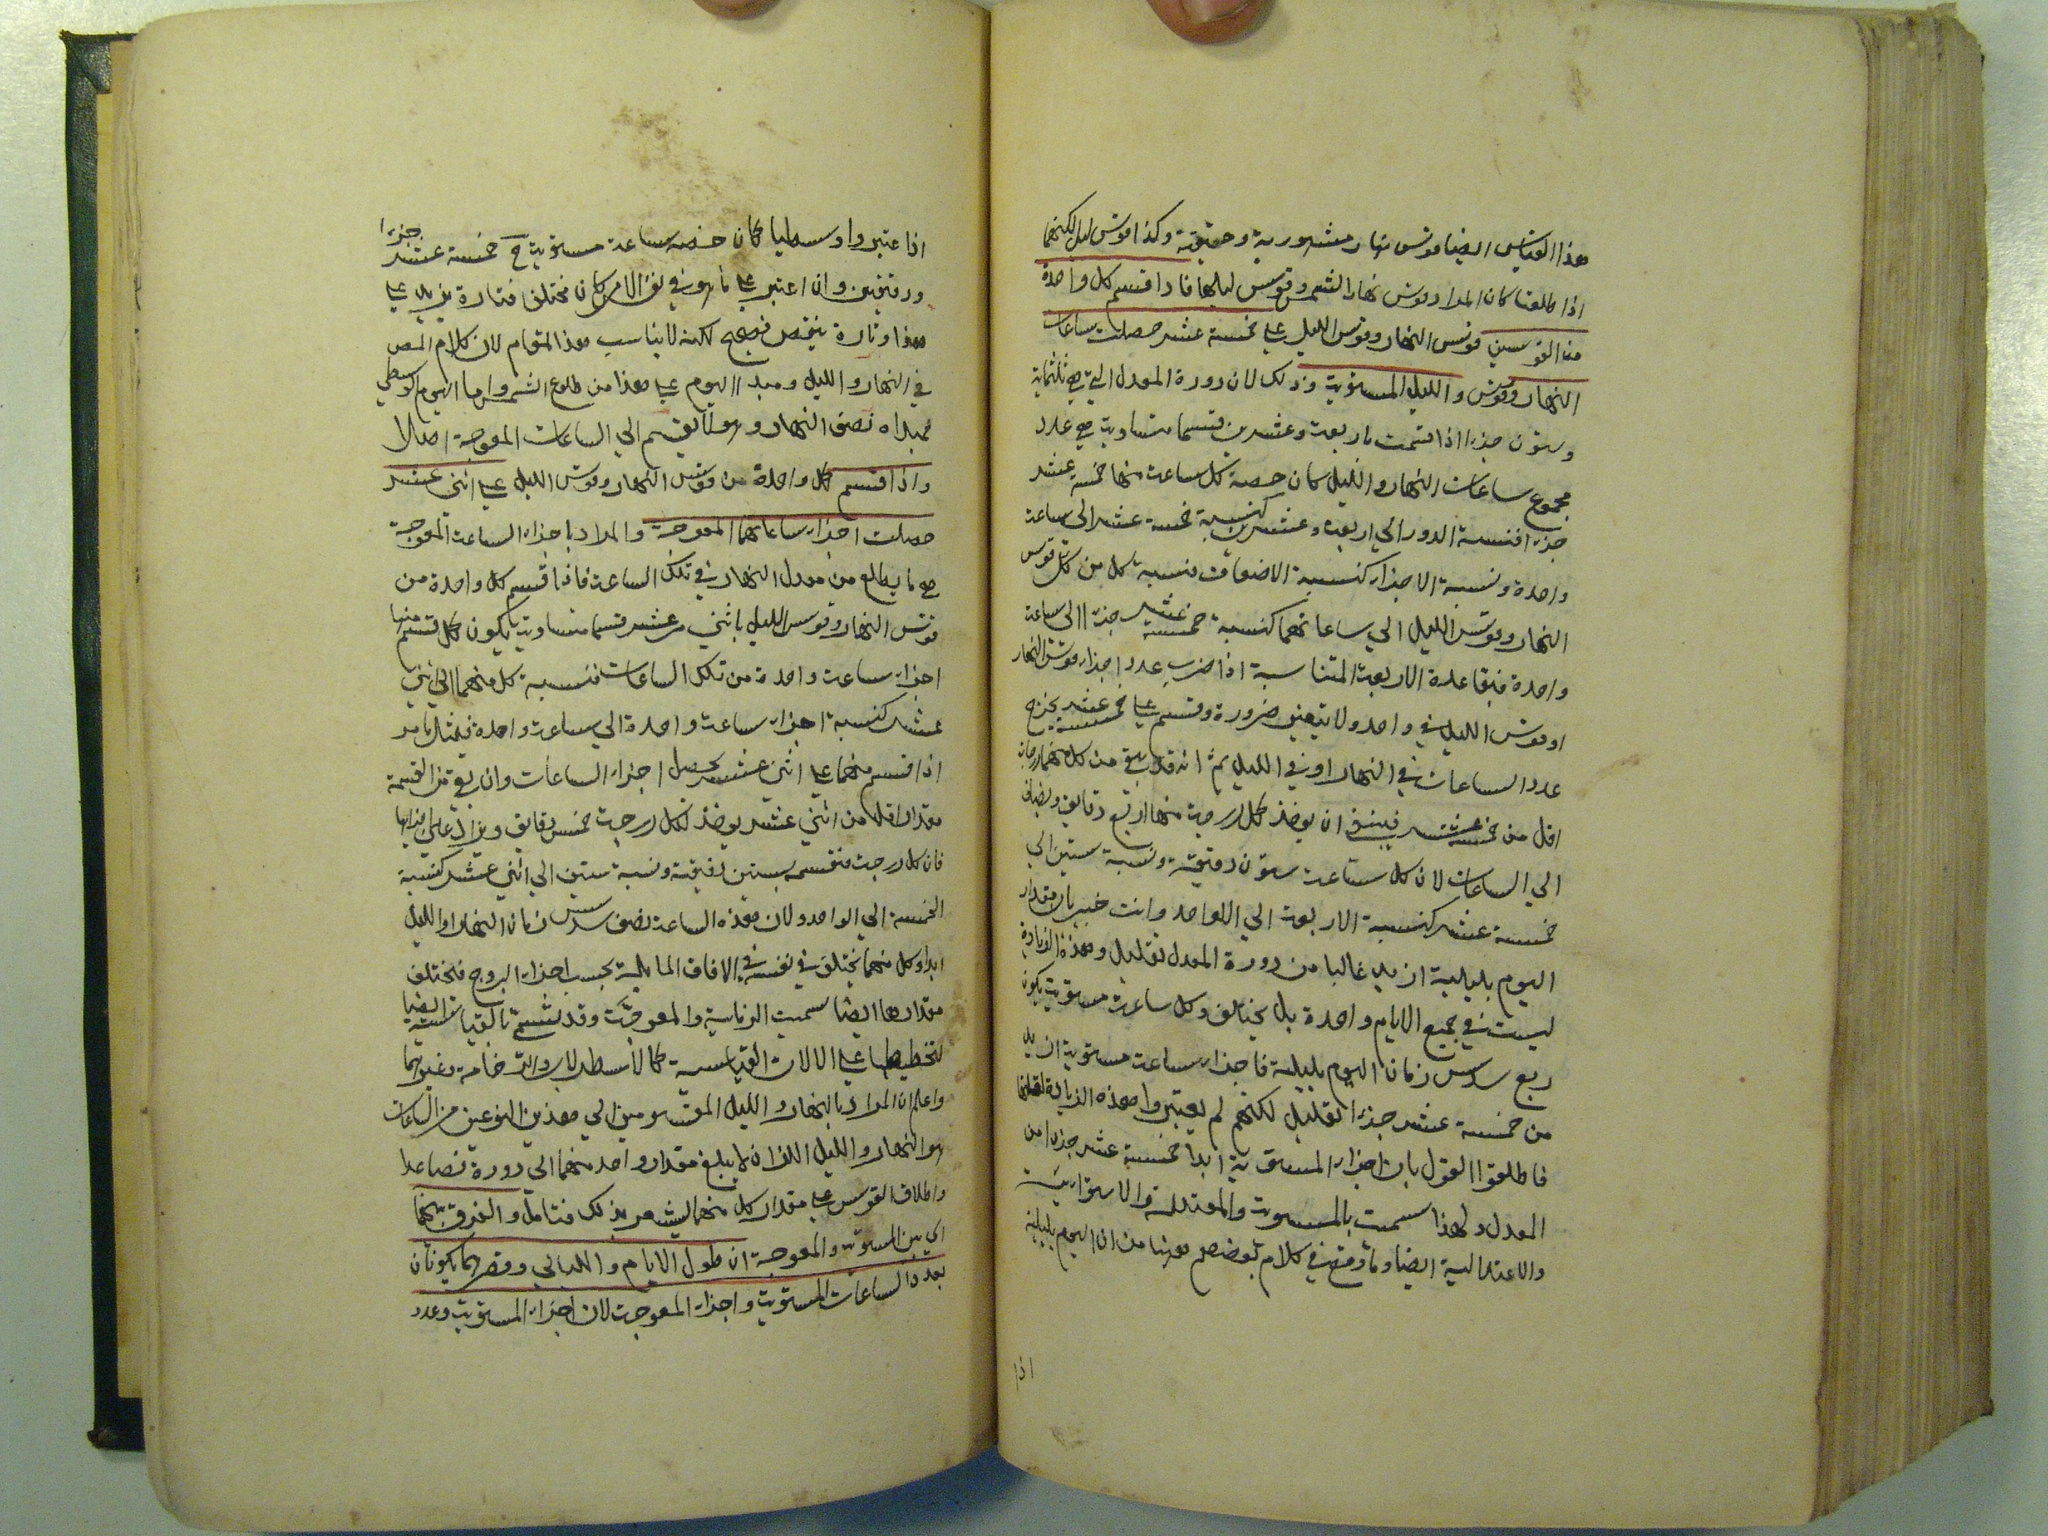 هذا القياس ايضا قوس نهار مشهورية وحقيقة وكذا قوس ليل لكنهما
اذا طلقا كان المراد قوس نهار الشمس وقوس ليلها فاذا قسم كل واحدة
من القوسين قوس النهار وقوس الليل على خمسة عشر حصلت ساعات
النهار وقوس والليل المستوية وذلك لان دورة المعدل التي هي ثلثماية
وستون جزءا اذا قسمت باربعة وعشرين قسما متساوية هي عدد
مجموع ساعات النهار والليل كان حصة كل ساعة منها خمسة عشر
جزءا فنسبة الدور الى اربعة وعشرين كنسبة خمسة عشر الى ساعة
واحدة ونسبة الاجزاء كنسبة الاضعاف فنسبة كل من كل قوس
النهار وقوس الليل الي ساعاتهما كنسبة خمسة عشر جزءا الى ساعة
واحدة فبقاعدة الاربعة المتناسبة اذا ضرب عدد اجزاء قوس النهار
او قوس الليل في واحد ولا يتغير ضرورة وقسم على خمسة عشر يخرج
عدد الساعات في النهار او في الليل ثم انه قد بقي من كل منهما درجات
اقل من خمسة عشر فينبغي ان يوخذ لكل درجة منها اربع دقايق ويضاف
الي الساعات لان كل ساعة ستون دقيقة ونسبة ستين الي
خمسة عشر كنسبة الاربعة الي الواحد وانت خبير بان مقدار
اليوم بليلية ازيد غالبا من دورة المعدل بقليل وهذه الزيادة
ليست في جميع الايام واحدة بل يختلف وكل ساعة مستوية يكون
ربع سدس زمان اليوم بليلة فاجزاء ساعة مستوية ازيد
من خمسة عشر جزءا بقليل لكنهم لم يعتبروا هذه الزيادة لقلتها
فاطلقوا القول بان اجزاء المستوية ابدا خمسة عشر جزءا من
المعدل ولهذا سميت بالمستوية والمعتدلة والاستوايية
والاعتدالية ايضا وما وقع في كلام بعضهم ههنا من ان اليوم بليلية
اذا
اذا اعتبروا وسطيا كان حصة ساعة مستوية ح خمسة عشر جزءا
ودقيقتين وان اعتبر على ما هو في نفس الامر كان مختلفا فتارة يزيد على
هذا وتارة ينقص فصحيح لكنه لا يناسب هذا المقام لان كلام المص
في النهار والليل ومبدا اليوم على هذا من طلوع الشمس واما اليوم الوسطي
فمبداه نصف النهار وهو لا يقسم الي الساعات المعوجة اصلا
واذا قسم كل واحدة من قوس النهار وقوس الليل على اثني عشر
حصلت اجزاء ساعاتهما المعوجة والمراد باجزاء الساعة المعوجة
هي ما يطلع من معدل النهار في تلك الساعة فاذا قسم كل واحدة من
قوس النهار وقوس الليل باثني عشر قسما متساوية يكون كل قسم منها
اجزاء ساعة واحدة من تلك الساعات فنسبة كل منهما الى اثني
عشر كنسبة اجزاء ساعة واحدة الي ساعة واحدة فبمثل ما مر
اذا قسم منهما على اثني عشر يحصل اجزاء الساعات وان بقي من القسمة
مقدار اقل من اثني عشر يوخذ لكل درجة خمس دقايق ويزاد على اجزايها
فان كل درجة منقسمة بستين دقيقة ونسبة ستين الي اثني عشر كنسبة
الخمسة الي الواحد ولان هذه الساعة نصف سدس زمان النهار او الليل
ابدا وكل منهما يختلف في نفسه في الافاق المايلة بحسب اجزاء البروج فتختلف
مقدارها ايضا سميت الزمانية والمعوجة وقد تسمى بالقياسية ايضا
لتخطيطها على الالات القياسية كالاسطرلاب والرخامة وغيرهما
واعلم ان المراد بالنهار والليل المقسومين الي هذين النوعين من الساعات
هو النهار والليل اللذان لا يبلغ مقدار واحد منهما الى دورة فصاعدا
واطلاق القوس على مقدار كل منهما يشعر بذلك فتامل والفرق بينهما
اي بين المستوية والمعوجة ان طول الايام والليالي وقصرهما يكونان
بعدد الساعات المستوية واجزاء المعوجة لان اجزاء المستوية وعدد